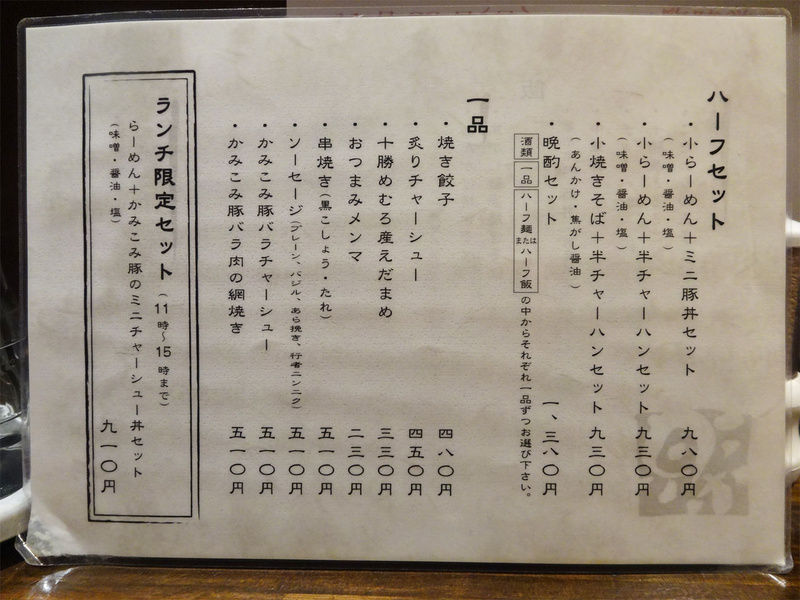 ハーフセット
・小らーめん＋ミニ豚丼セット 九八〇円
（味噌・醤油・塩）
・小らーめん＋半チャーハンセット 九三〇円
（味噌・醤油・塩）
・小焼きそば＋半チャーハンセット 九三〇円
（あんかけ・焦がし醤油）
・晩酌セット 一、三八〇円
酒類 一品 ハーフ麺またはハーフ飯 の中からそれぞれ一品ずつお選び下さい。
一品
・焼き餃子 四八〇円
・炙りチャーシュー 四五〇円
・十勝めむろ産えだまめ 三三〇円
・おつまみメンマ 二三〇円
・串焼き（黒こしょう・たれ） 五一〇円
・ソーセージ（プレーン、バジル、あら挽き、行者ニンニク） 五一〇円
・かみこみ豚バラチャーシュー 五一〇円
・かみこみ豚バラ肉の網焼き 五一〇円
ランチ限定セット（11時～15時まで）
らーめん＋かみこみ豚のミニチャーシュー丼セット
（味噌・醤油・塩） 九一〇円